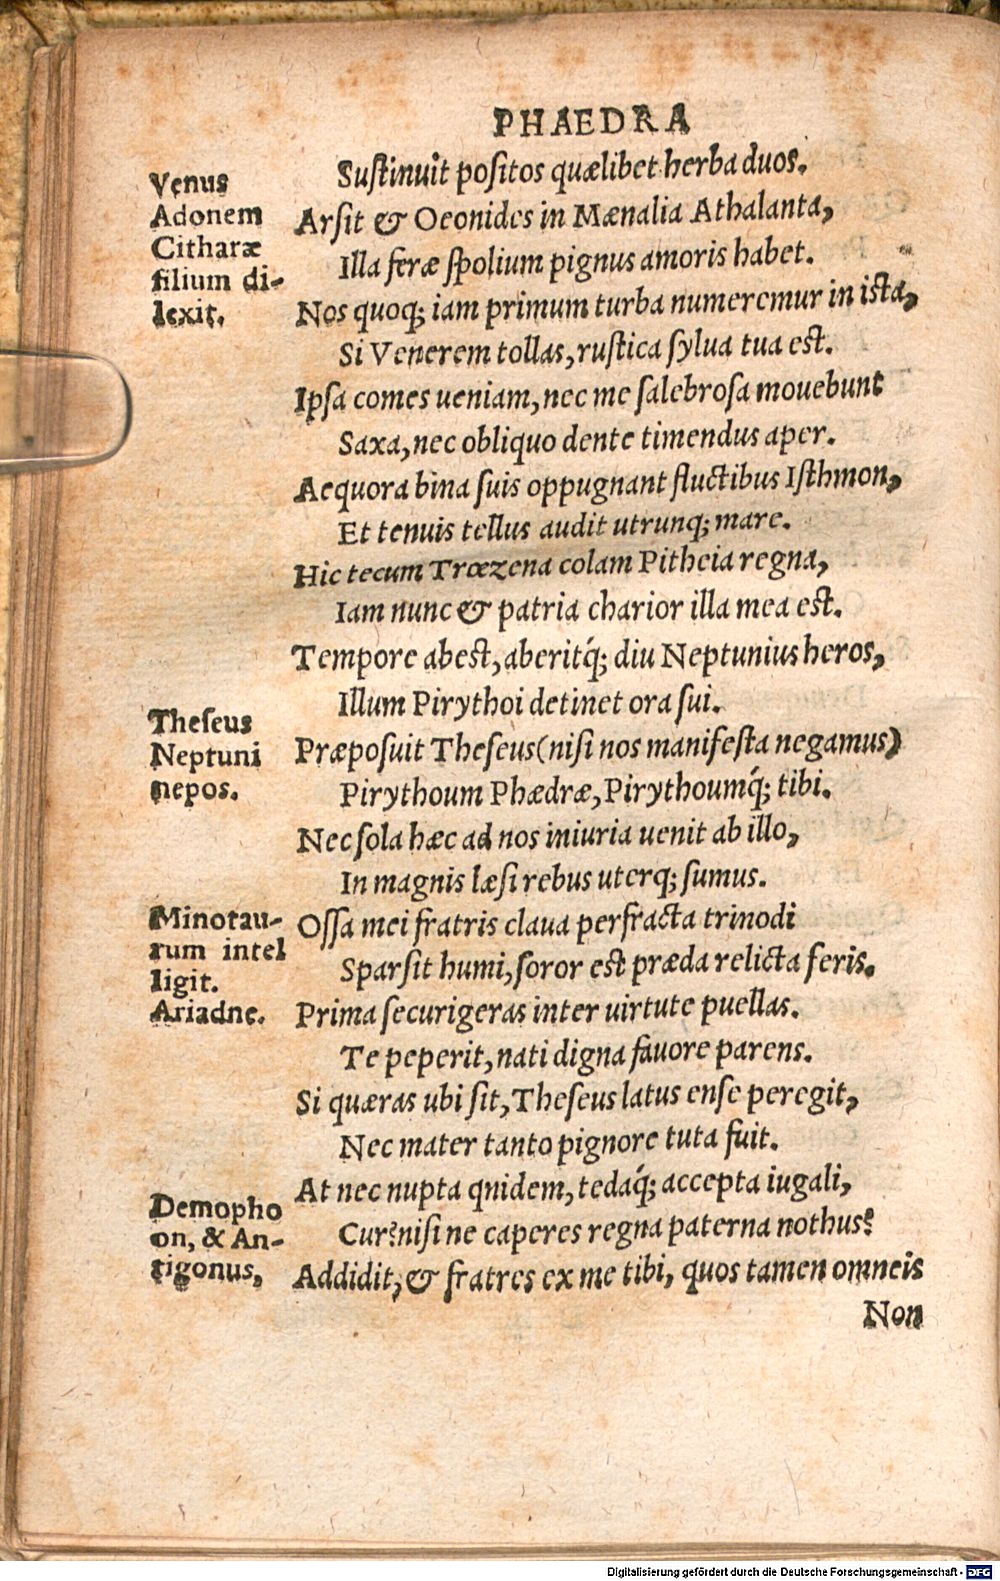 PHAEDRA
Venus
Adonem
Citharæ
filium di-
lexit.
Suſtinuit poſitos quælibet herba duos.
Arſit & Oeonides in Mænalia Athalanta,
Illa feræ ſpolium pignus amoris habet.
Nos quoq; iam primum turba numeremur in iſta,
Si Venerem tollas, ruſtica ſylua tua eſt.
Ipſa comes ueniam, nec me ſalebroſa mouebunt
Saxa, nec obliquo dente timendus aper.
Aequora bina ſuis oppugnant fluctibus Iſthmon,
Et tenuis tellus audit utrunq; mare.
Hic tecum Trœzena colam Pitheia regna,
Iam nunc & patria charior illa mea eſt.
Tempore abeſt, aberitq́; diu Neptunius heros,
Illum Pirythoi detinet ora ſui.
Theſeus
Neptuni
nepos.
Præpoſuit Theſeus (niſi nos manifeſta negamus)
Pirythoum Phædræ, Pirythoumq́; tibi.
Nec ſola hæc ad nos iniuria uenit ab illo,
In magnis læſi rebus uterq; ſumus.
Minotau-
rum intel
ligit.
Ariadne.
Oſſa mei fratris claua perfracta trinodi
Sparſit humi, ſoror eſt præda relicta feris.
Prima ſecurigeras inter uirtute puellas.
Te peperit, nati digna fauore parens.
Si quæras ubi ſit, Theſeus latus enſe peregit,
Nec mater tanto pignore tuta fuit.
At nec nupta qnidem, tedaq́; accepta iugali,
Cur? niſi ne caperes regna paterna nothus?
Demopho
on, & An-
tigonus,
Addidit, & fratres ex me tibi, quos tamen omneis
Non
Digitalisierung gefördert durch die Deutsche Forschungsgemeinschaft - DFG